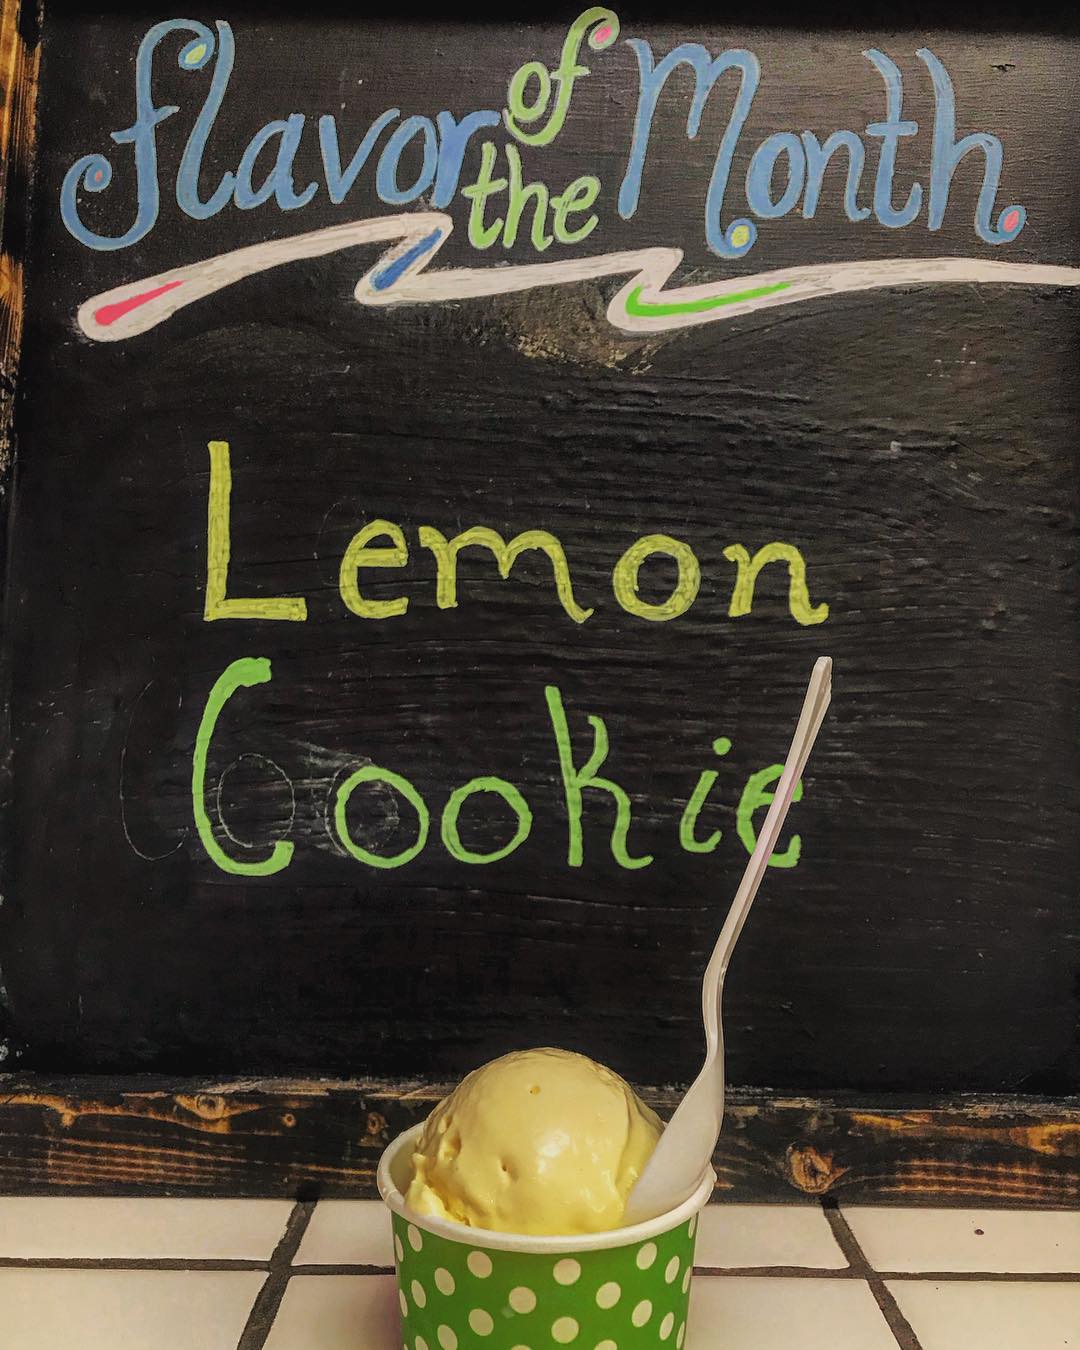 flavor of the Month
Lemon
Cookie